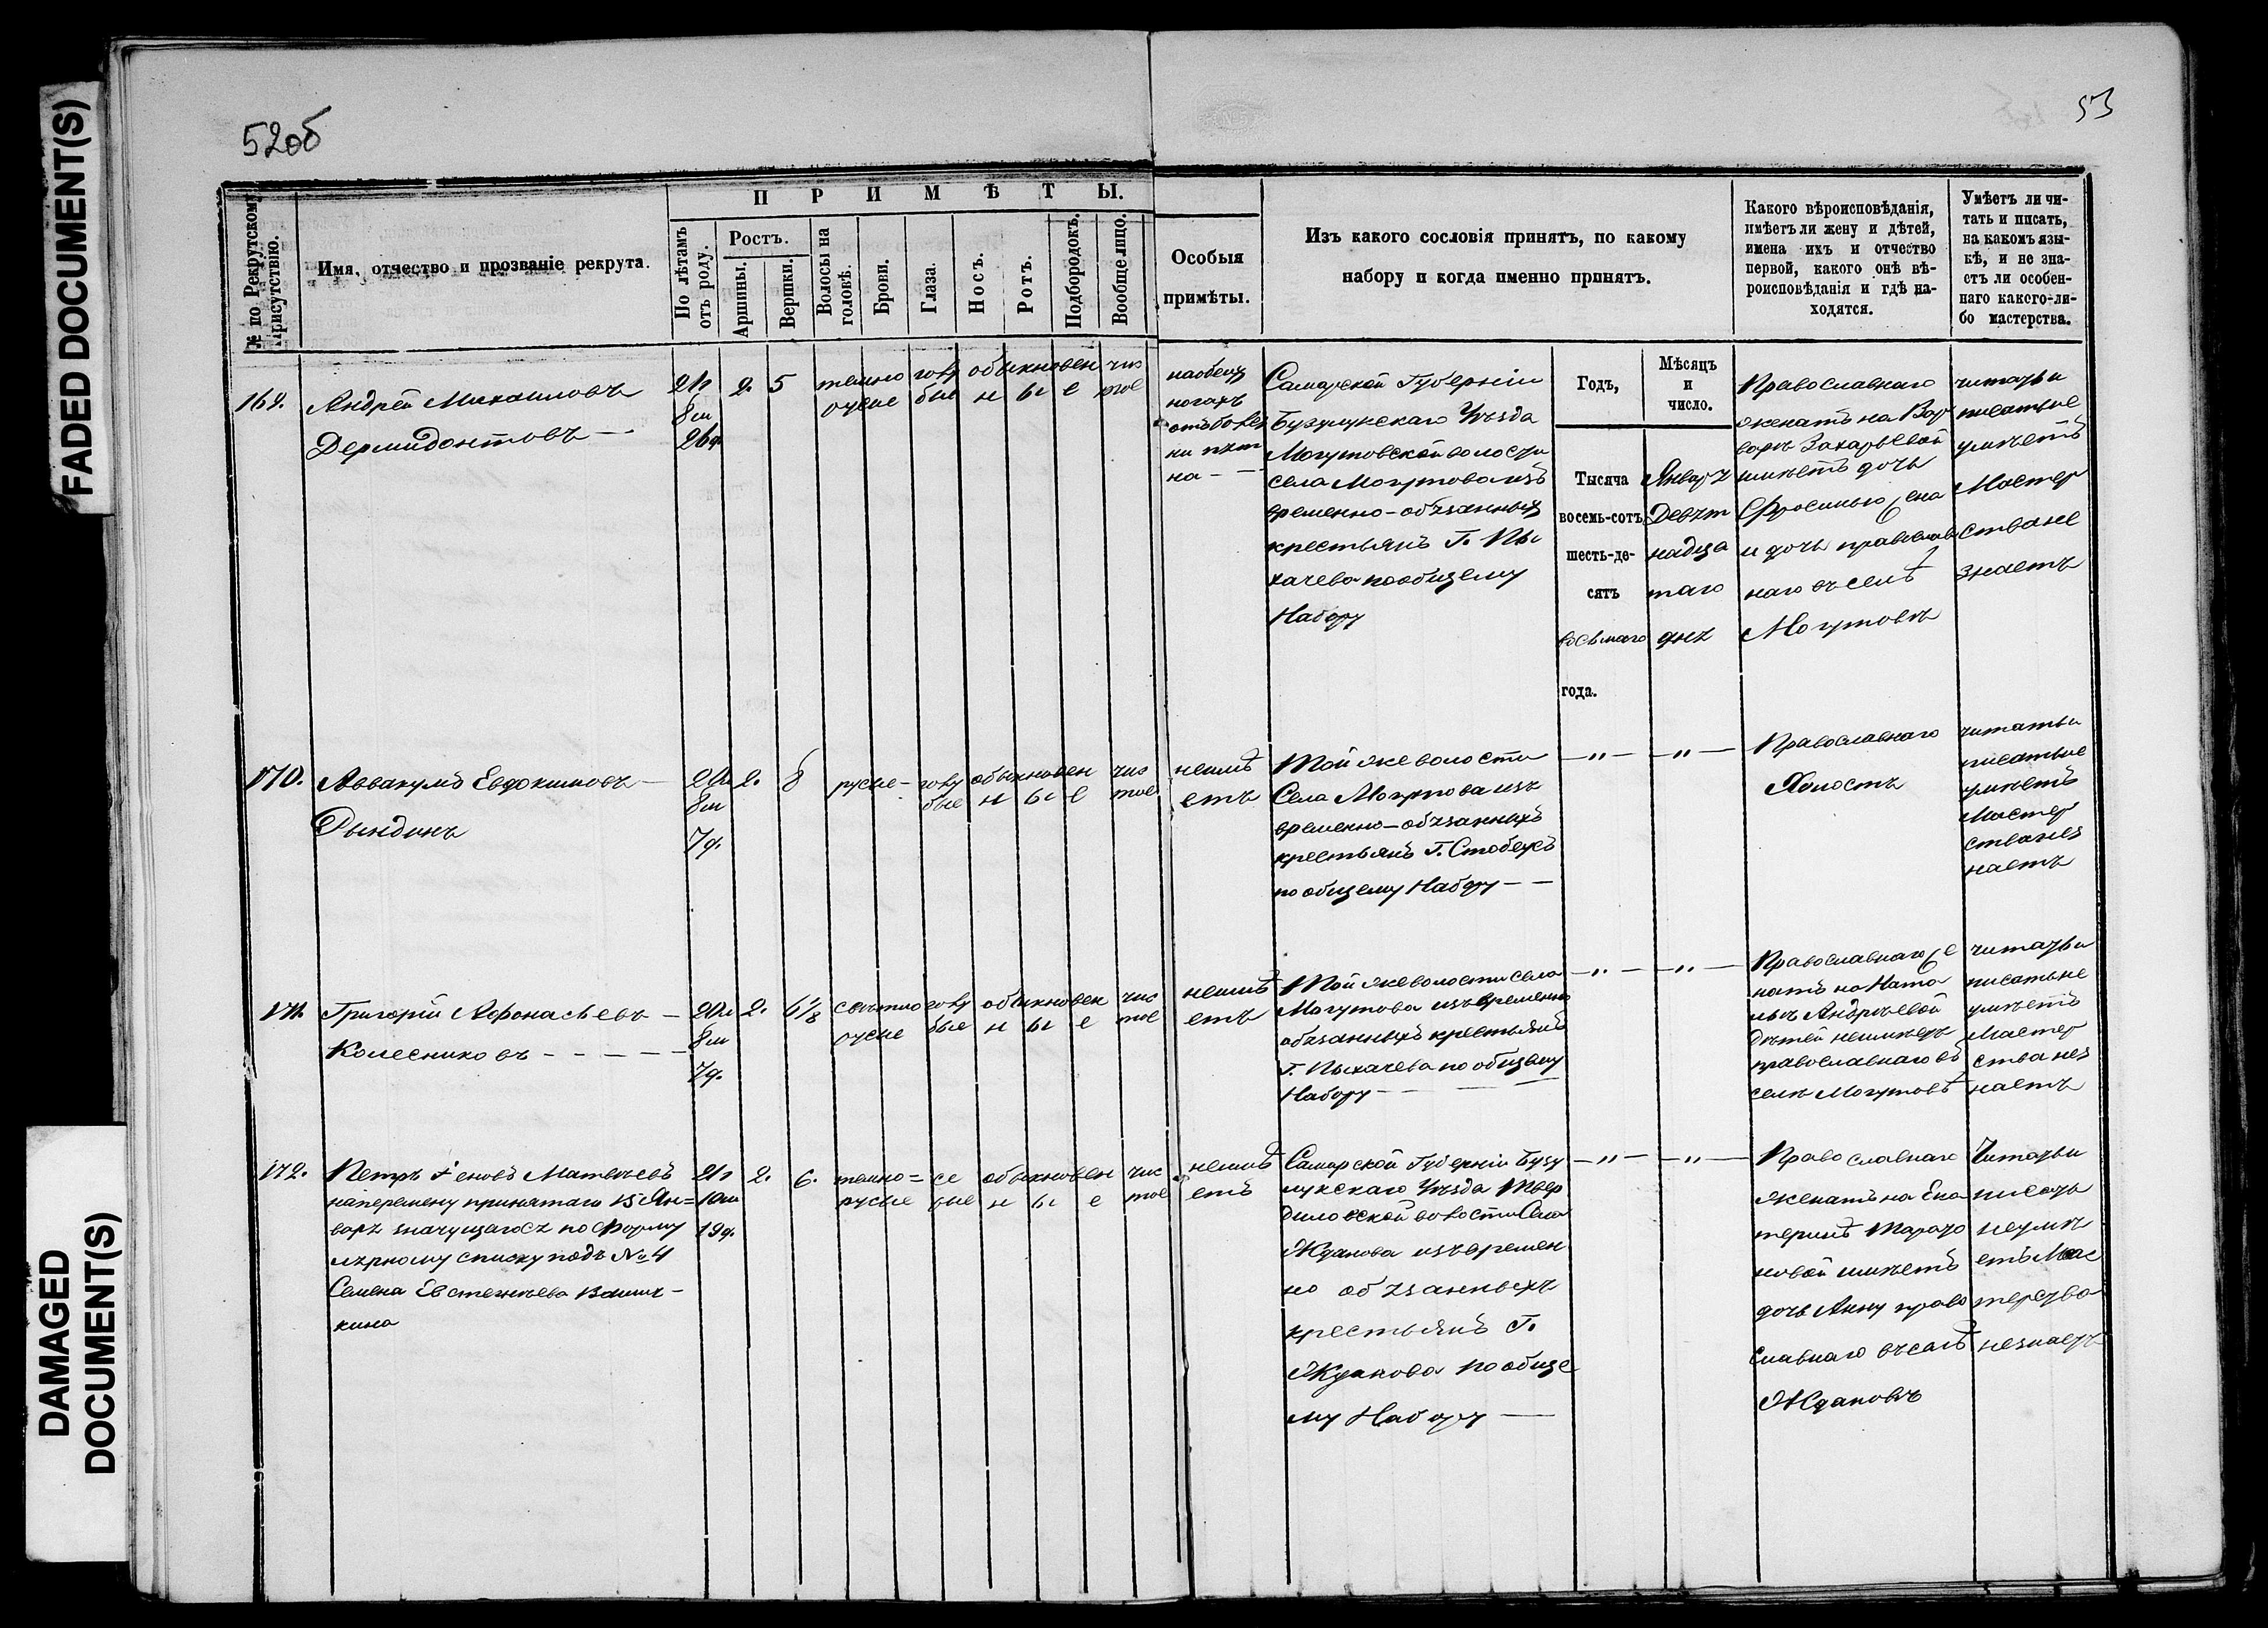 FADED DOCUMENT(S)
DAMAGED
DOCUMENT(S)
52об
53
№ по Рекрутскому
Присутствію.
Имя, отчество и прозваніе рекрута.
ПРИМѢТЫ.
По лѣтамъ
отъ роду.
Ростъ.
Аршины.
Вершки.
Волосы на
головѣ.
Брови.
Глаза.
Носъ.
Ротъ.
Подбородокъ.
Вообще лицо.
Особыя
примѣты.
Изъ какого сословія принятъ, по какому
набору и когда именно принятъ.
Какого вѣроисповѣданія,
имѣетъ ли жену и дѣтей,
имена ихъ и отчество
первой, какого онѣ вѣ-
роисповѣданія и гдѣ на-
ходятся.
Умѣетъ ли чи-
тать и писать,
на какомъ язы-
кѣ, и не зна-
етъ ли особен-
наго какого-ли-
бо мастерства.
169.
Андрей Михаиловъ
Дермидонтовъ —
21г
8м
26д
2.
5
темно
русые
голу
бые
обыкновен
н ы е
чис
тое
на обеих
ногахъ
пят
на —
Самарской Губерніи
Бузулукскаго Уѣзда
Могутовской волости
села Могутова изъ
временно-обязанных
крестьянъ Г. Пы
хачева по общему
Набору
Годъ,
Мѣсяцъ
и
число.
Тысяча
восемь-сотъ
шесть-де-
сятъ
восьмаго
года.
Января
Девят
надца
таго
дня
Православнаго
женатъ на Вар
варѣ Захарьевой
имѣетъ дочь
Фросинью
и дочь православ
наго въ селѣ
Могутовѣ
читать и
писать не
умѣетъ
Мастер
ства не
знаетъ
170.
Аввакумъ Евдокимовъ —
Рындинъ
8м
7д.
2.
русые —
голу
бые
обыкновен
н ы е
чис
тое
неимѣ
етъ
Той же волости
Села Могутова изъ
временно-обязанныхъ
крестьянъ Г.
по общему Набору — —
— „ —
— „ —
Православнаго
Холостъ
читать и
писать не
умѣетъ
Мастер
ства нез
наетъ
171.
Григорій Афонасьевъ —
Колесниковъ — — — — —
20л
8м
7д.
2.
6 1/8
свѣтло
русые
голу
бые
обыкновен
н ы е
чис
тое
неимѣ
етъ
Той же волости села
Могутова изъ временно
обязанныхъ крестьянъ
Г. Пыхачева по общему
Набору —
— „ —
— „ —
Православнаго же
натъ на Ната
льѣ Андреевой
дѣтей неимѣетъ
православнаго въ
селѣ Могутовѣ
читать и
писать не
умѣетъ
Мастер
ства нез
наетъ
172.
Петръ Матвѣевъ
наперемену принятаго 15 Ян=
варя значущагося по Форму
лярному списку подъ № 4
Семена
кина
21г
10м
19д.
2.
6.
темно=
русые
се
рые
обыкновен
н ы е
чис
тое
неимѣ
етъ
Самарской Губерніи Бузу
лукскаго Уѣзда Твер
диловской волости Села
Жданова изъ времен
но обязанныхъ
крестьянъ Г.
Жданова по обще
му Набору —
— „ —
— „ —
Православнаго
женатъ на Ека
теринѣ Тарасо
новой имѣетъ
дочь Анну право
славнаго въ селѣ
Ждановѣ
Читать и
писать
неумѣ
етъ Мас
терства
незнаетъ